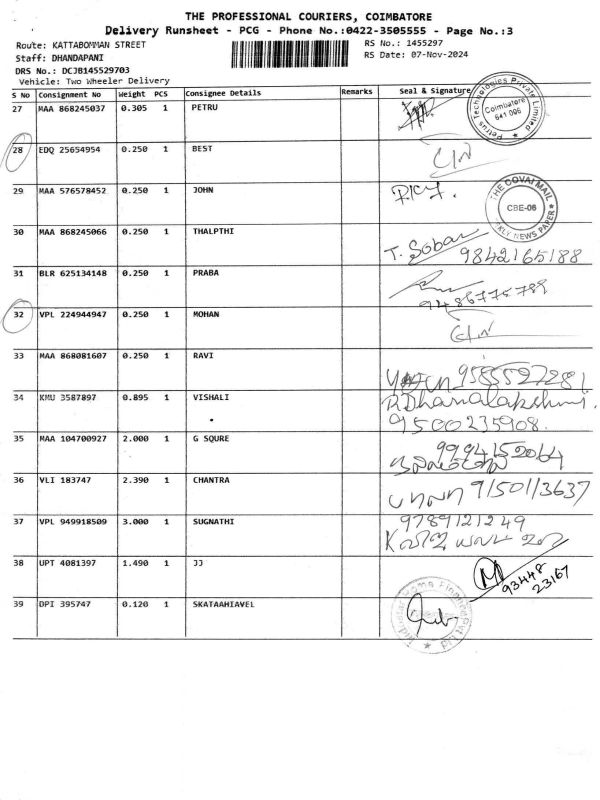 THE PROFESSIONAL COURIERS, COIMBATORE
Delivery Runsheet - PCG - Phone No.:0422-3505555 - Page No.:3
Route: KATTABOMMAN STREET
RS No.: 1455297
Staff: DHANDAPANI
RS Date: 07-Nov-2024
DRS No.: DCJB145529703
Vehicle: Two Wheeler Delivery
S No Consignment No Weight PCS Consignee Details Remarks Seal & Signature
27 MAA 868245037 0.305 1 PETRU
Petrus Technologies Private Limited
Coimbatore
641 006
28 EDQ 25654954 0.250 1 BEST
29 MAA 576578452 0.250 1 JOHN
THE COVAI MAIL
CBE-06
NEWS PAPER
30 MAA 868245066 0.250 1 THALPTHI T. Soban 9842165188
31 BLR 625134148 0.250 1 PRABA 9486775789
32 VPL 224944947 0.250 1 MOHAN
33 MAA 868081607 0.250 1 RAVI 9585527281
34 KMU 3587897 0.895 1 VISHALI R.Dhanalakshmi.
9500235908.
35 MAA 104700927 2.000 1 G SQURE 9994152064
36 VLI 183747 2.390 1 CHANTRA 9150113637
37 VPL 949918509 3.000 1 SUGNATHI 9789121249
38 UPT 4081397 1.490 1 JJ 93448
23167
39 DPI 395747 0.120 1 SKATAAHIAVEL